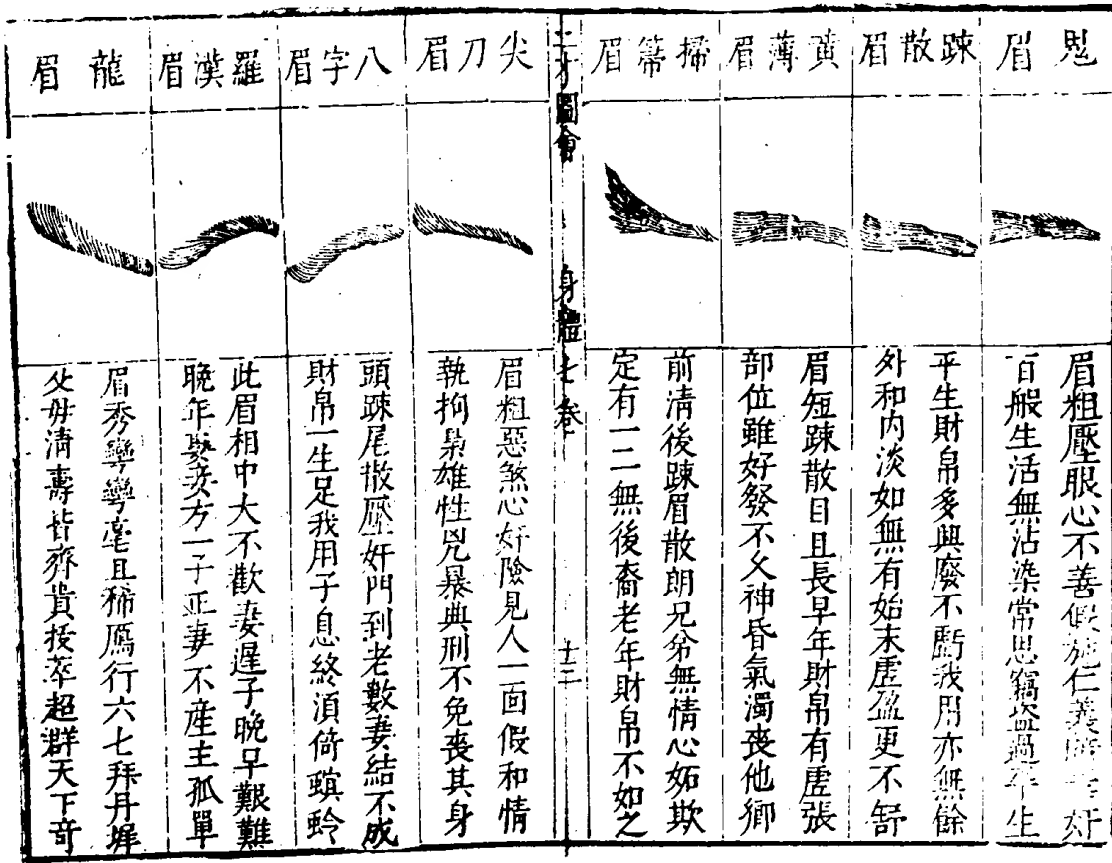 鬼眉
眉粗壓眼心不善假施仁義
百般生活無沾染常思竊盗過平生
踈散眉
平生財帛多興廢不虧我用亦無餘
外和内淡如無有始末虚盈更不舒
黄薄眉
眉短踈散目且長早年財帛有虚張
部位雖好發不久神昏氣濁喪他鄉
掃箒眉
前清後踈眉散朗兄弟無情心妬欺
定有一二無後裔老年財帛不如之
三才圖會 身體七卷 十二
尖刀眉
眉粗惡煞心奸險見人一面假和情
執拗梟雄性兇暴典刑不免喪其身
八字眉
頭踈尾散壓奸門到老數妻結不成
財帛一生足我用子息終湏倚螟蛉
羅漢眉
此眉相中大不歡妻遲子晚早艱難
晚年娶妾方一子正妻不産主孤單
龍眉
眉秀彎彎毫且稀鴈行六七拜丹墀
父母清壽皆齊貴拔萃超群天下竒